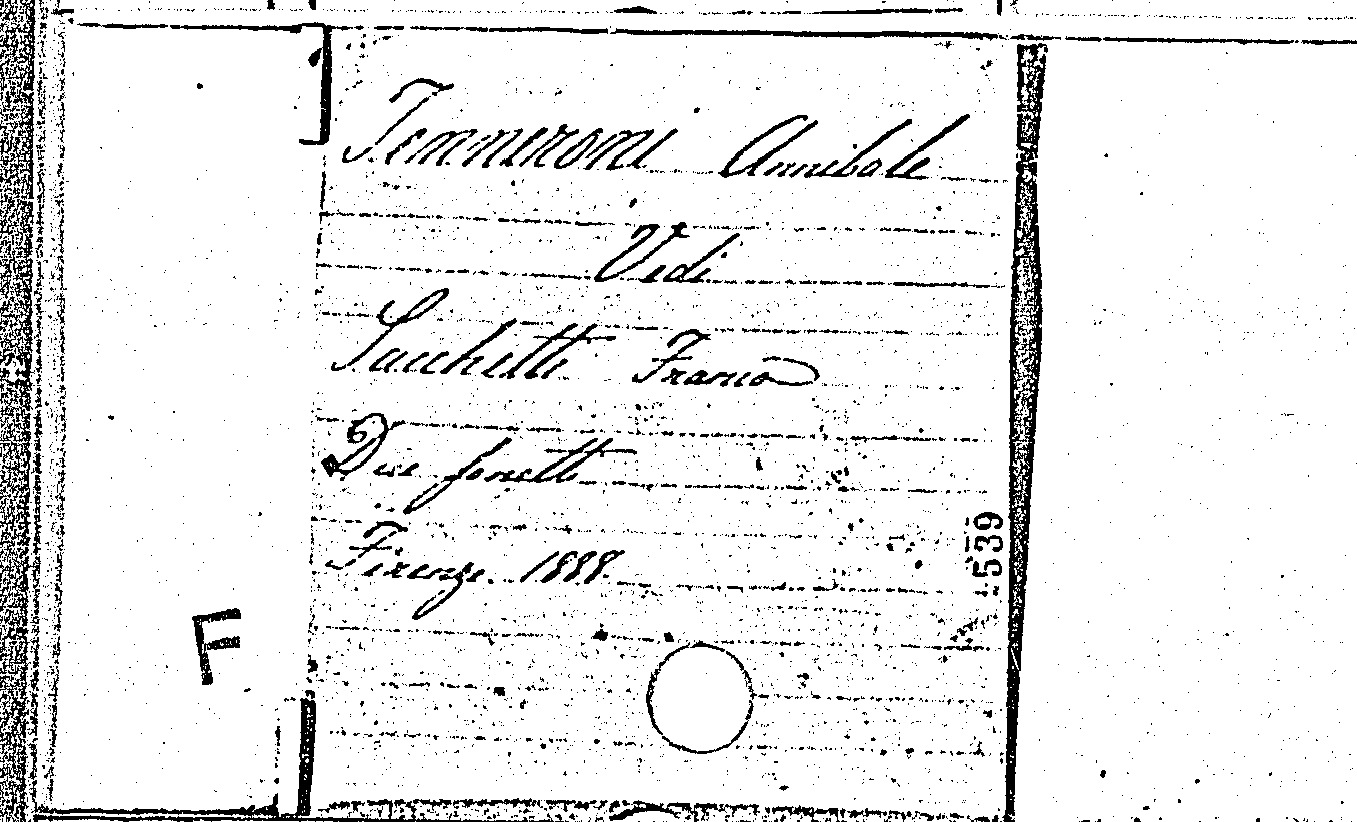 Tenneroni Annibale
Vedi
Sacchetti Franco
Due sonetti
Firenze. 1888.
539
F